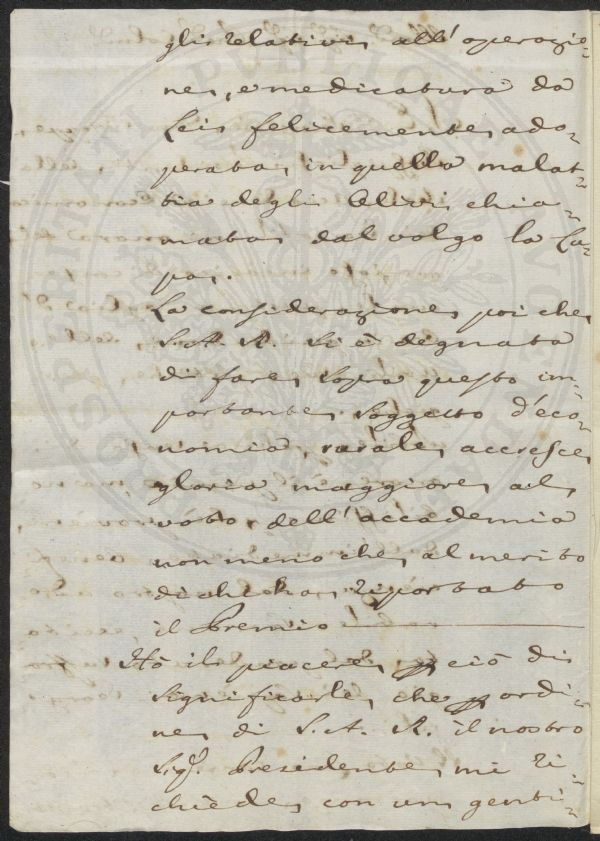 gli relativi all' operazio-
ne, e medicatura da
Lei felicemente ado-
perata in quella malat-
tia degli Ulivi chia-
mata dal volgo la Lu-
pa.
La considerazione poi che
S. A. R. si è degnata
di fare sopra questo im-
portante soggetto d'eco-
nomia rurale accresce
gloria maggiore al
voto dell'accademia
non meno che al merito
di chi ha riportato
il Premio
Hò il piacere p ciò di
significarle che p ordi-
ne di S. A. R. il nostro
Sig.r Presidente mi ri-
chiede con un genti-
PROSPERITATI PUBLICAE AUGENDAE